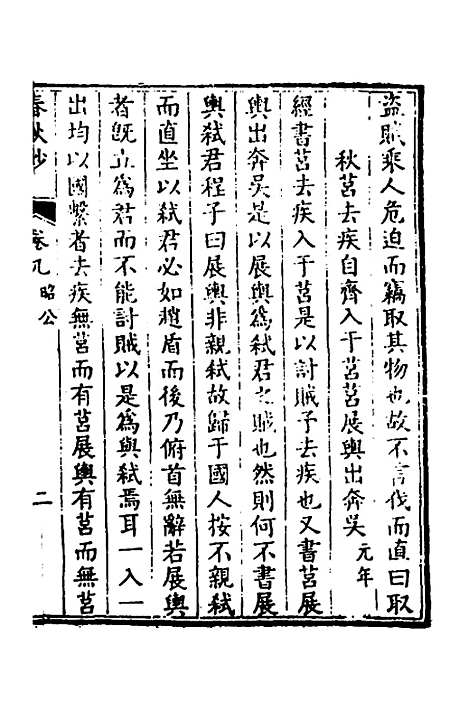 盜賊乘人危迫而竊取其物也故不言伐而直曰取
秋莒去疾自齊入于莒莒展輿出奔吳 元年
經書莒去疾入于莒是以討賊予去疾也又書莒展
輿出奔吳是以展輿為弒君之賊也然則何不書展
輿弒君程子曰展輿非親弒故歸于國人按不親弒
而直坐以弒君必如趙盾而後乃俯首無辭若展輿
者既立為君而不能討賊以是為與弒焉耳一入一
出均以國繫者去疾無莒而有莒展輿有莒而無莒
春秋抄 卷九 昭公 二